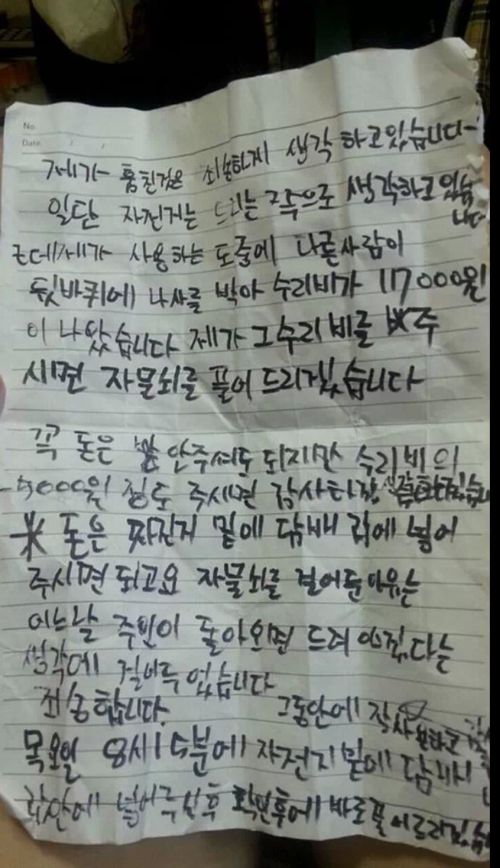 No.
Date
제가 훔친건은 죄송하게 생각 하고있습니다-
일단 자전거는 드리는 그쪽으로 생각하고 있습
니다
근데 제가 사용하는 도중에 나쁜사람이
뒷바퀴에 나사를 박아 수리비가 117000원
이 나왔습니다 제가 그수리 비를 주
시면 자물쇠를 풀어 드리겠습니다
꼭 돈은 안주셔도 되지만 수리비의
-5000원 정도 주시면 감사하장
* 돈은 짜진거 밑에 담배 곽에 넣어
주시면 되고요 자물쇠를 걸어둔 이유는
어느날 주인이 돌아오면 드려야겠다는
생각에 걸어두었습니다
죄송합니다. 그동안에 잘사용하고
목요일 8시15분에 자전거 밑에 담배
곽안에 넣어주신후 확인후에 바로풀어드리겠습